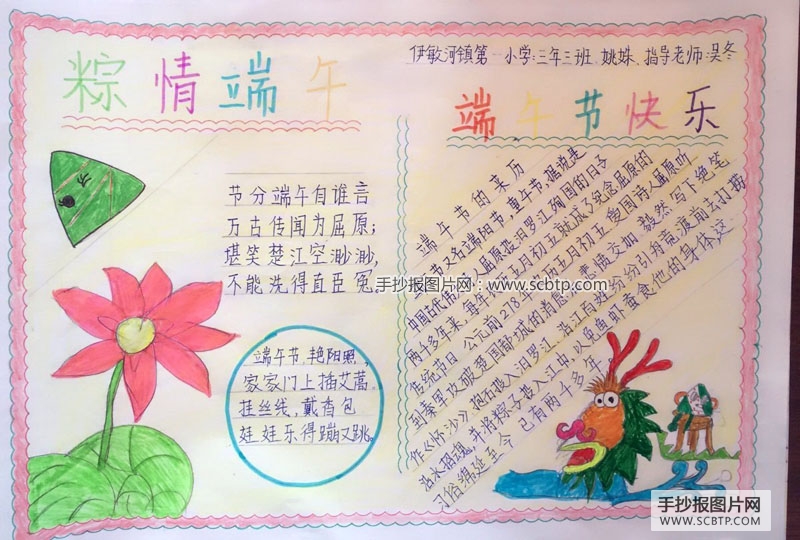 粽情端午
伊敏河镇第一小学:三年三班 姚姝 指导老师:吴冬
端午节快乐
节分端午自谁言
万古传闻为屈原;
堪笑楚江空渺渺,
不能洗得直臣冤
端午节,艳阳照,
家家门上插艾蒿
挂丝线,戴香包
娃娃乐得蹦又跳。
端午节的来历
端午节又名端阳节,重午节,据说是
中国古代伟大诗人屈原投汩罗江殉国的日子
两千多年来,每年的五月初五就成了纪念屈原的
传统节日 公元前278年的五月初五 爱国诗人屈原听
到秦军攻破楚国都城的消息 悲愤交加 毅然写下绝笔
作《怀沙》 抱石投入汩罗江 沿江百姓纷纷引舟竞渡前去打捞
沿水招魂,并将粽子投入江中,以免鱼虾蚕食他的身体,这
习俗绵延至今 已有两千多年
手抄报图片网:www.scbtp.com
手抄报图片网
WWW.SCBTP.COM